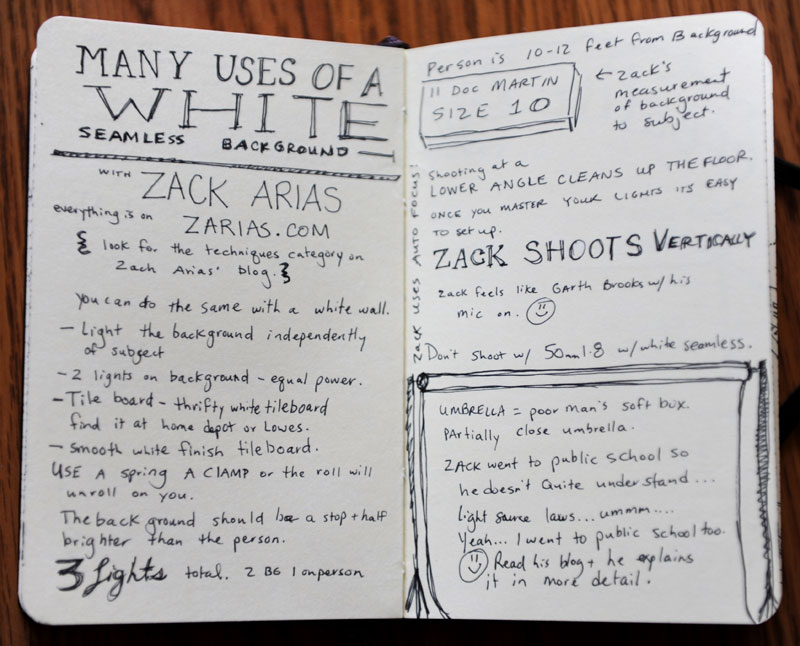 MANY USES OF A
WHITE
SEAMLESS BACKGROUND
WITH ZACK ARIAS
everything is on ZARIAS.COM
{ look for the techniques category on
Zach Arias' blog. }
You can do the same with a white wall.
- Light the background independently
of subject
- 2 lights on background - equal power.
- Tile board - thrifty white tileboard
find it at home depot or Lowes.
- smooth white finish tileboard.
USE A spring A CLAMP or the roll will
unroll on you.
The back ground should be a stop + half
brighter than the person.
3 Lights total. 2 BG 1 on person
Person is 10-12 feet from Background
11 DOC MARTIN
SIZE 10
← Zack's
measurement
of background
to subject.
Zack uses AUTO FOCUS!
Shooting at a
LOWER ANGLE CLEANS UP THE FLOOR.
ONCE YOU MASTER YOUR LIGHTS ITS EASY
TO set up.
ZACK SHOOTS VERTICALLY
Zack feels like GARTH Brooks w/ his
mic on. ☺
Don't shoot w/ 50mm 1.8 w/ white seamless.
UMBRELLA = poor man's soft box.
PARtially close umbrella.
ZACK went to public school so
he doesn't Quite understand...
Light source laws... ummm....
Yeah... I went to public school too.
☺ Read his blog + he explains
it in more detail.